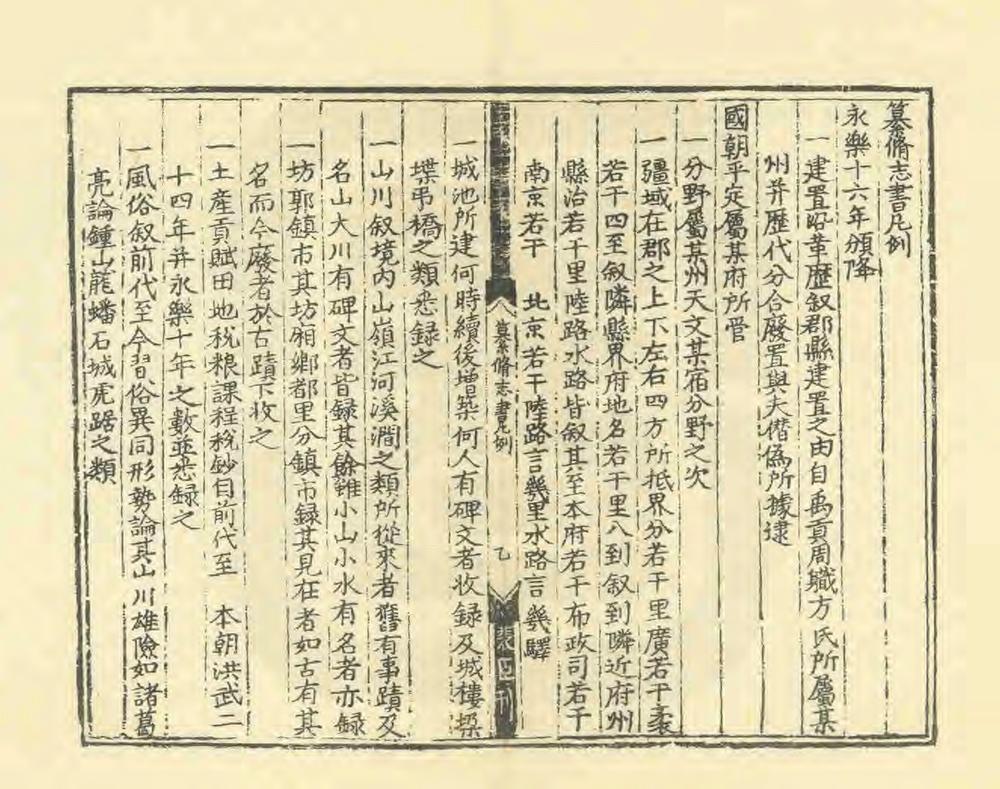 纂脩志書凡例
永樂十六年頒降
一建置沿革歷叙郡縣建置之由自禹貢周職方氏所屬某
州并歷代分合廢置與夫僣偽所據逮
國朝平定屬某府所管
一分野屬某州天文某宿分野之次
一疆域在郡之上下左右四方所抵界分若干里廣若干袤
若干四至叙隣縣界府地名若干里八到叙到隣近府州
縣治若干里陸路水路皆叙其至本府若干布政司若干
南京若干 北京若干陸路言幾里水路言幾驛
纂脩志書凡例
一城池所建何時續後增築何人有碑文者收録及城樓垜
堞弔橋之類悉録之
一山川叙境内山嶺江河溪澗之類所從來者舊有事蹟及
名山大川有碑文者皆録其餘雖小山小水有名者亦録
一坊郭鎮市其坊廂鄉都里分鎮市録其見在者如古有其
名而今廢者於古蹟下收之
一土産貢賦田地税粮課程税鈔自前代至 本朝洪武二
十四年并永樂十年之數並悉録之
一風俗叙前代至今習俗異同形勢論其山川雄險如諸葛
亮論鍾山龍蟠石城虎踞之類